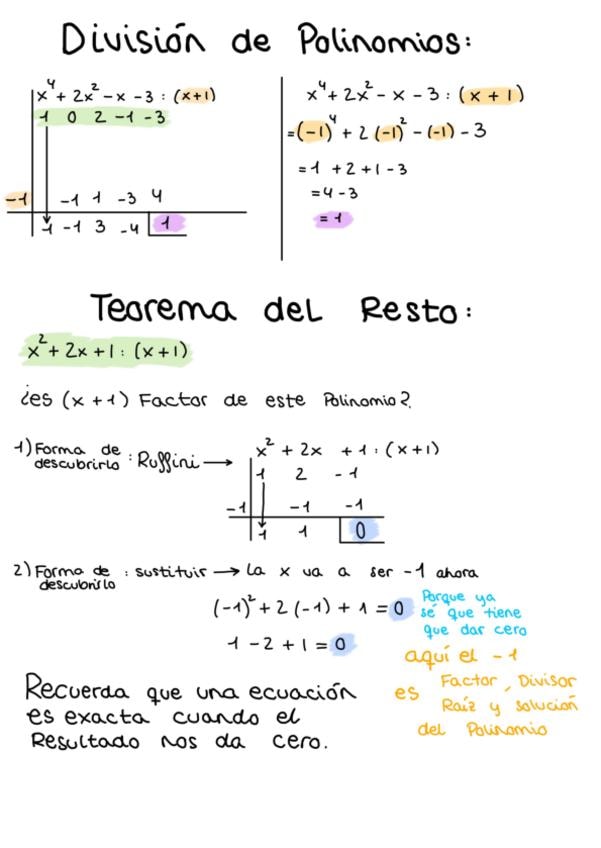 División de Polinomios:
x⁴ + 2x² - x - 3 : (x+1)
1 0 2 -1 -3
-1 -1 1 -3 4
1 -1 3 -4 1
x⁴ + 2x² - x - 3 : (x + 1)
= (-1)⁴ + 2 (-1)² - (-1) - 3
= 1 + 2 + 1 - 3
= 4 - 3
= 1
Teorema del Resto:
x² + 2x + 1 : (x+1)
¿es (x + 1) Factor de este Polinomio?
1) Forma de descubrirlo : Ruffini →
x² + 2x + 1 : (x+1)
1 2 -1
-1 -1 -1
1 1 0
2) Forma de descubrirlo : sustituir → la x va a ser -1 ahora
(-1)² + 2 (-1) + 1 = 0
1 - 2 + 1 = 0
Porque ya
sé que tiene
que dar cero
Recuerda que una ecuación
es exacta cuando el
Resultado nos da cero.
aquí el -1
es Factor, Divisor
Raíz y solución
del Polinomio